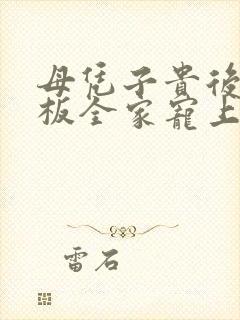 母凭子貴後
板全家寵上
雷石